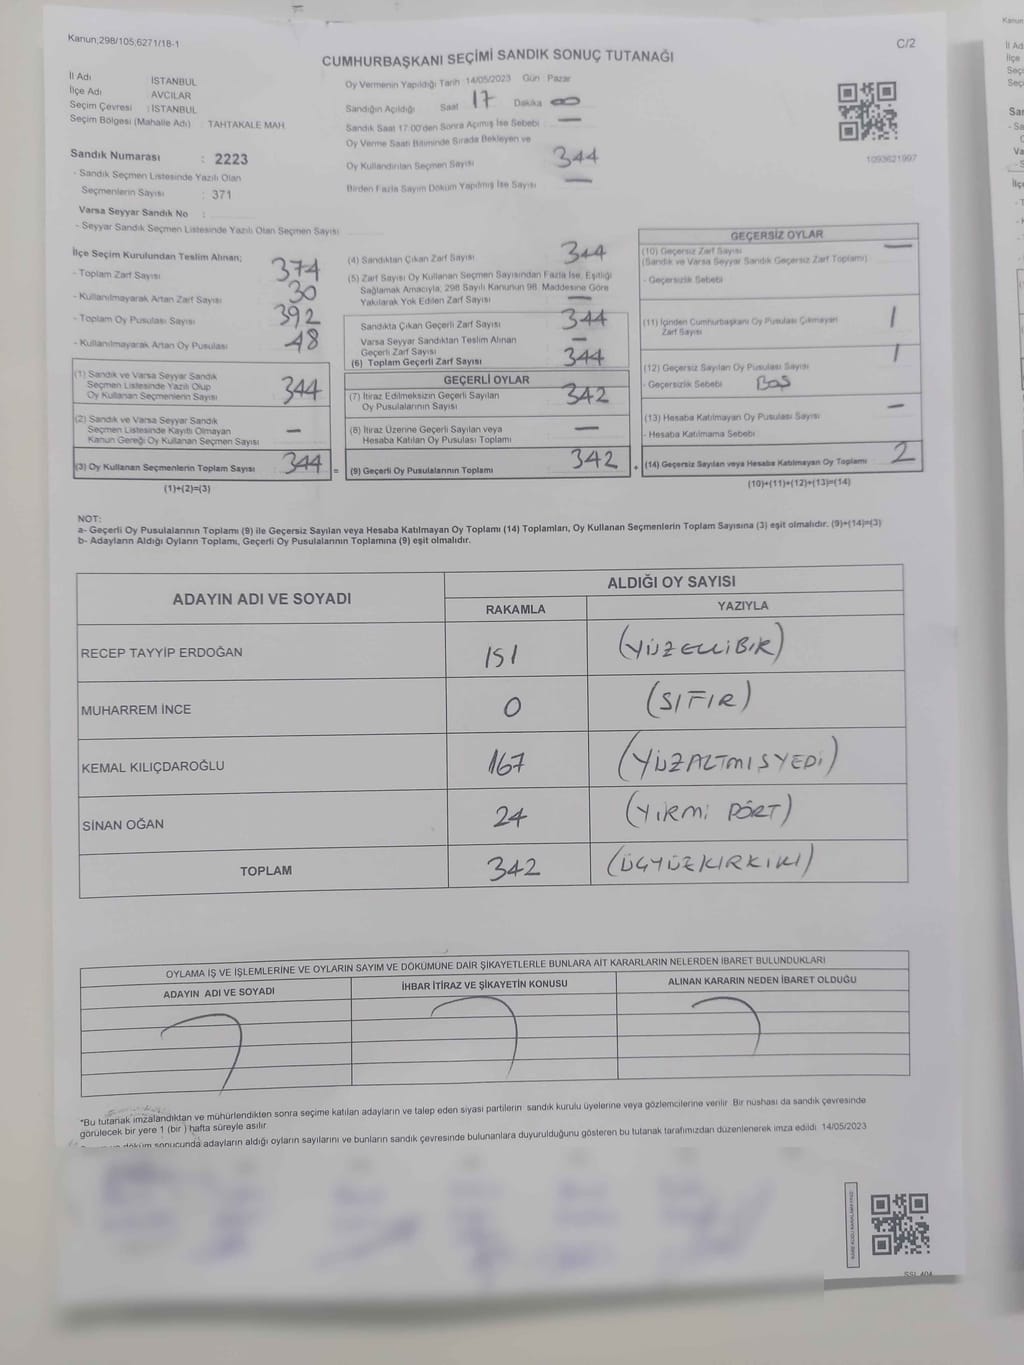 Kanun;298/105;6271/18-1
C/2
CUMHURBAŞKANI SEÇİMİ SANDIK SONUÇ TUTANAĞI
İl Adı İSTANBUL
İlçe Adı AVCILAR
Seçim Çevresi : İSTANBUL
Seçim Bölgesi (Mahalle Adı) : TAHTAKALE MAH.
Sandık Numarası : 2223
- Sandık Seçmen Listesinde Yazılı Olan
Seçmenlerin Sayısı : 371
Varsa Seyyar Sandık No :
- Seyyar Sandık Seçmen Listesinde Yazılı Olan Seçmen Sayısı
Oy Vermenin Yapıldığı Tarih : 14/05/2023 Gün : Pazar
Sandığın Açıldığı Saat 17 Dakika 00
Sandık Saat 17:00'den Sonra Açılmış İse Sebebi : —
Oy Verme Saati Bitiminde Sırada Bekleyen ve
Oy Kullandırılan Seçmen Sayısı 344
Birden Fazla Sayım Döküm Yapılmış İse Sayısı —
1093621997
İlçe Seçim Kurulundan Teslim Alınan;
- Toplam Zarf Sayısı 374
- Kullanılmayarak Artan Zarf Sayısı 30
- Toplam Oy Pusulası Sayısı 392
- Kullanılmayarak Artan Oy Pusulası 48
(1) Sandık ve Varsa Seyyar Sandık
Seçmen Listesinde Yazılı Olup
Oy Kullanan Seçmenlerin Sayısı 344
(2) Sandık ve Varsa Seyyar Sandık
Seçmen Listesinde Kayıtlı Olmayan
Kanun Gereği Oy Kullanan Seçmen Sayısı —
(3) Oy Kullanan Seçmenlerin Toplam Sayısı 344
(1)+(2)=(3)
(4) Sandıktan Çıkan Zarf Sayısı 344
(5) Zarf Sayısı Oy Kullanan Seçmen Sayısından Fazla İse, Eşitliği
Sağlamak Amacıyla, 298 Sayılı Kanunun 98. Maddesine Göre
Yakılarak Yok Edilen Zarf Sayısı —
Sandıkta Çıkan Geçerli Zarf Sayısı 344
Varsa Seyyar Sandıktan Teslim Alınan
Geçerli Zarf Sayısı —
(6) Toplam Geçerli Zarf Sayısı 344
GEÇERLİ OYLAR
(7) İtiraz Edilmeksizin Geçerli Sayılan
Oy Pusulalarının Sayısı 342
(8) İtiraz Üzerine Geçerli Sayılan veya
Hesaba Katılan Oy Pusulası Toplamı —
= (9) Geçerli Oy Pusulalarının Toplamı 342 +
GEÇERSİZ OYLAR
(10) Geçersiz Zarf Sayısı —
(Sandık ve Varsa Seyyar Sandık Geçersiz Zarf Toplamı)
- Geçersizlik Sebebi
(11) İçinden Cumhurbaşkanı Oy Pusulası Çıkmayan
Zarf Sayısı 1
(12) Geçersiz Sayılan Oy Pusulası Sayısı 1
- Geçersizlik Sebebi BOŞ
(13) Hesaba Katılmayan Oy Pusulası Sayısı —
- Hesaba Katılmama Sebebi
(14) Geçersiz Sayılan veya Hesaba Katılmayan Oy Toplamı 2
(10)+(11)+(12)+(13)=(14)
NOT:
a- Geçerli Oy Pusulalarının Toplamı (9) ile Geçersiz Sayılan veya Hesaba Katılmayan Oy Toplamı (14) Toplamları, Oy Kullanan Seçmenlerin Toplam Sayısına (3) eşit olmalıdır. (9)+(14)=(3)
b- Adayların Aldığı Oyların Toplamı, Geçerli Oy Pusulalarının Toplamına (9) eşit olmalıdır.
ADAYIN ADI VE SOYADI ALDIĞI OY SAYISI
RAKAMLA YAZIYLA
RECEP TAYYİP ERDOĞAN 151 (YÜZELLİBİR)
MUHARREM İNCE 0 (SIFIR)
KEMAL KILIÇDAROĞLU 167 (YÜZALTMIŞYEDİ)
SİNAN OĞAN 24 (YİRMİ DÖRT)
TOPLAM 342 (ÜÇYÜZKIRKİKİ)
OYLAMA İŞ VE İŞLEMLERİNE VE OYLARIN SAYIM VE DÖKÜMÜNE DAİR ŞİKAYETLERLE BUNLARA AİT KARARLARIN NELERDEN İBARET BULUNDUKLARI
ADAYIN ADI VE SOYADI İHBAR İTİRAZ VE ŞİKAYETİN KONUSU ALINAN KARARIN NEDEN İBARET OLDUĞU
*Bu tutanak imzalandıktan ve mühürlendikten sonra seçime katılan adayların ve talep eden siyasi partilerin sandık kurulu üyelerine veya gözlemcilerine verilir. Bir nüshası da sandık çevresinde
görülecek bir yere 1 (bir ) hafta süreyle asılır.
döküm sonucunda adayların aldığı oyların sayılarını ve bunların sandık çevresinde bulunanlara duyurulduğunu gösteren bu tutanak tarafımızdan düzenlenerek imza edildi. 14/05/2023